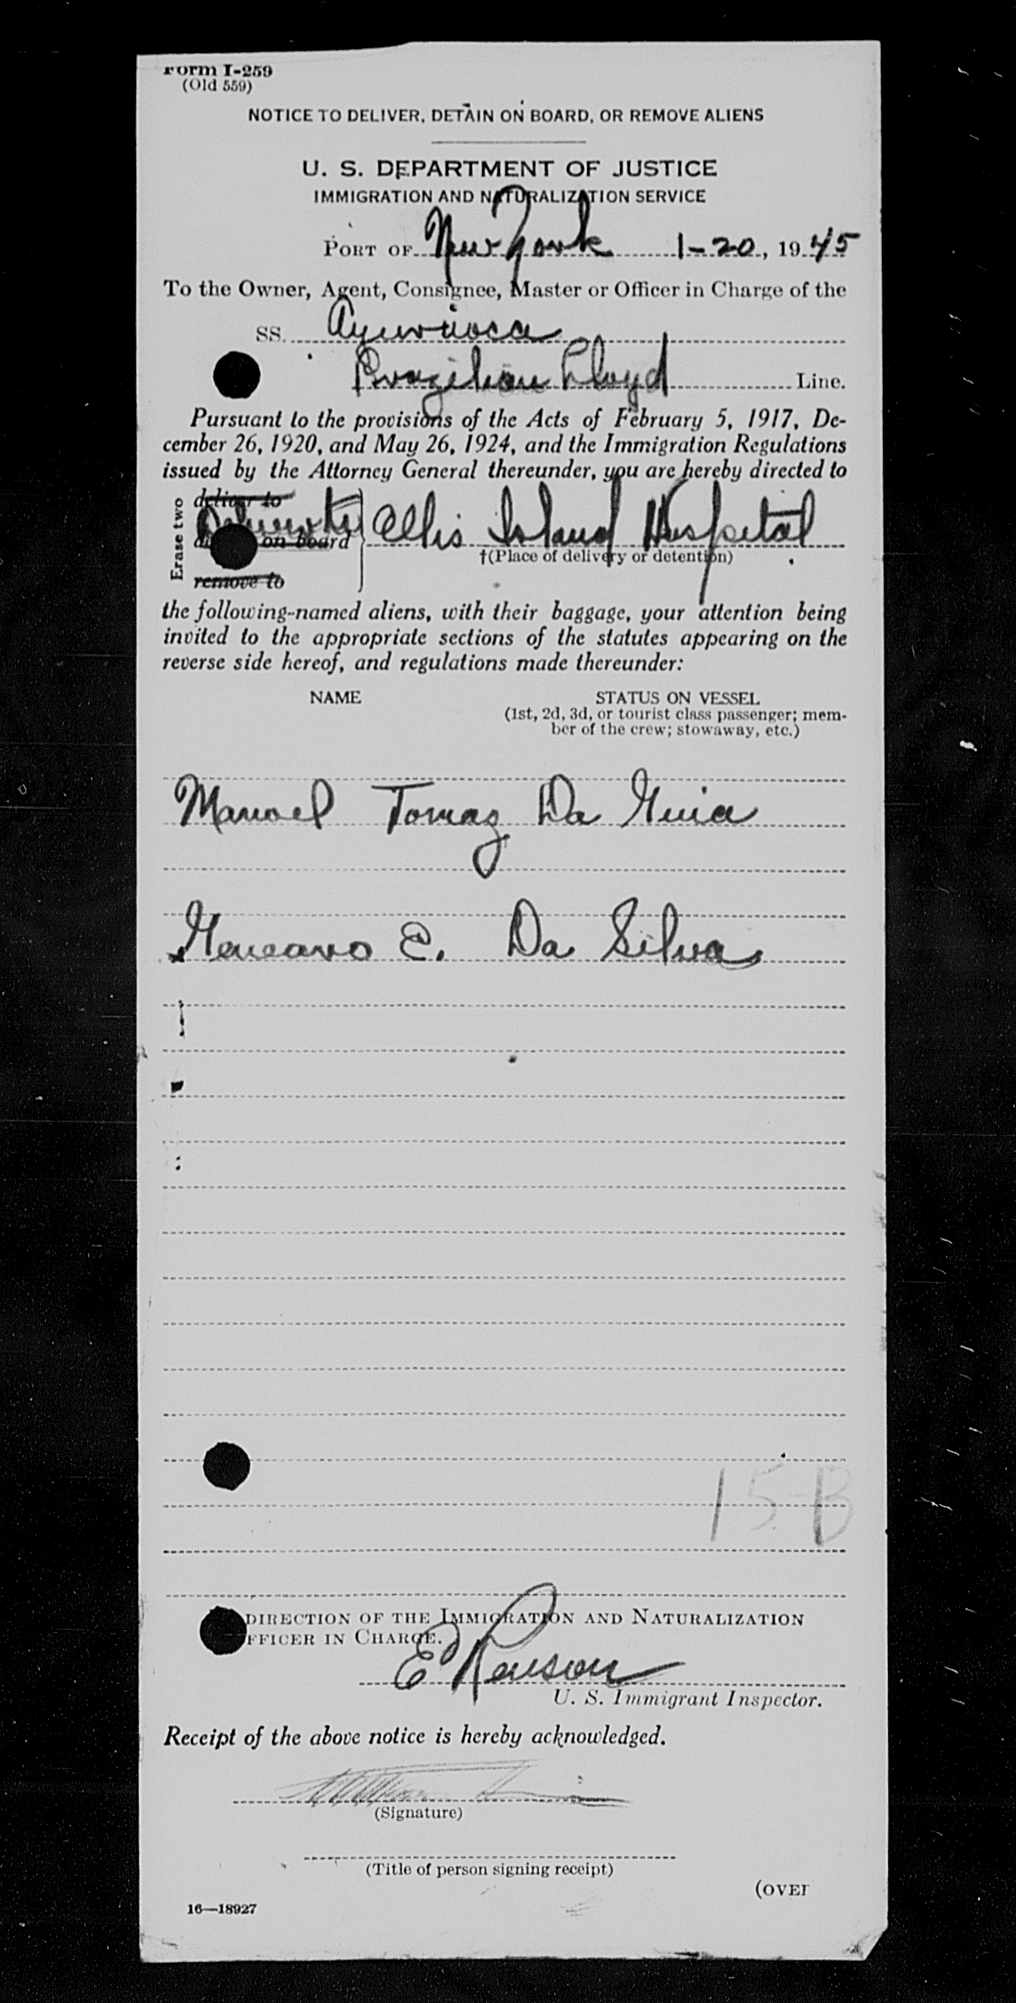 Form I-259
(Old 559)
NOTICE TO DELIVER, DETAIN ON BOARD, OR REMOVE ALIENS
U. S. DEPARTMENT OF JUSTICE
IMMIGRATION AND NATURALIZATION SERVICE
PORT OF New York 1-20, 1945
To the Owner, Agent, Consignee, Master or Officer in Charge of the
SS. Ayuruoca
Brazilian Lloyd Line.
Pursuant to the provisions of the Acts of February 5, 1917, De-
cember 26, 1920, and May 26, 1924, and the Immigration Regulations
issued by the Attorney General thereunder, you are hereby directed to
Erase two
deliver to
on board Ellis Island Hospital
†(Place of delivery or detention)
remove to
the following-named aliens, with their baggage, your attention being
invited to the appropriate sections of the statutes appearing on the
reverse side hereof, and regulations made thereunder:
NAME STATUS ON VESSEL
(1st, 2d, 3d, or tourist class passenger; mem-
ber of the crew; stowaway, etc.)
Manoel Tomaz Da Guia
E. Da Silva
15-B
DIRECTION OF THE IMMIGRATION AND NATURALIZATION
FFICER IN CHARGE.
U. S. Immigrant Inspector.
Receipt of the above notice is hereby acknowledged.
(Signature)
(Title of person signing receipt)
(OVER
16—18927